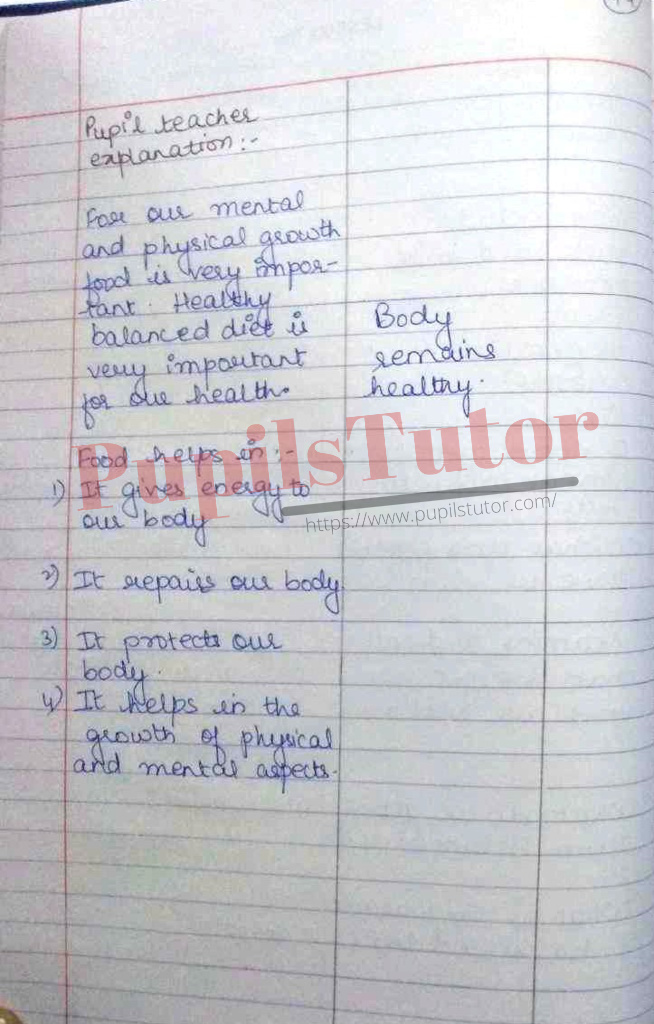 Pupil teacher
explanation :-
For our mental
and physical growth
food is very impor-
tant. Healthy
balanced diet is
very important
for our health.
Body
remains
healthy.
Food helps in :-
1) It gives energy to
our body
2) It repairs our body
3) It protects our
body.
4) It helps in the
growth of physical
and mental aspects.
PupilsTutor
https://www.pupilstutor.com/